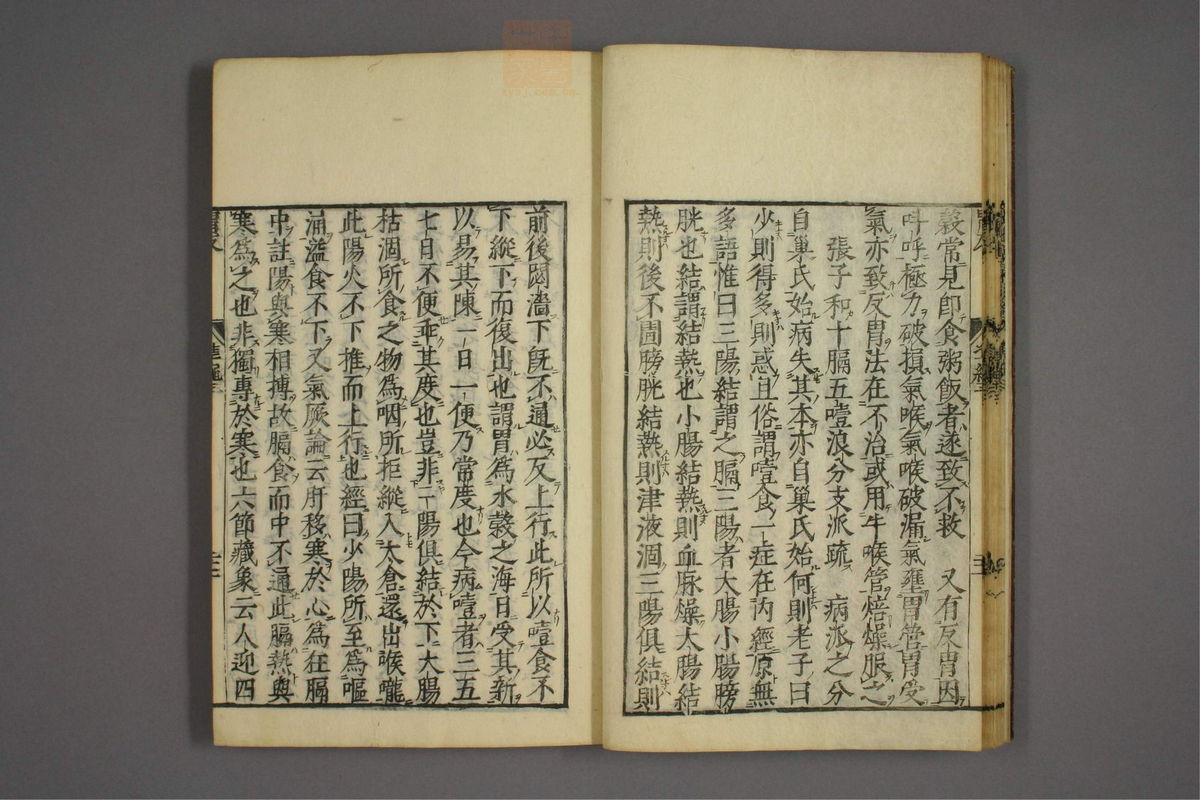 穀常見即食粥飯者遂致不救　又有反胃因
叫呼極力破損氣喉氣喉破漏氣壅胃管胃受
氣亦致反胃法在不治或用牛喉管焙燥服之
張子和十膈五噎浪分支派疏　病派之分
自巢氏始病失其本亦自巢氏始何則老子曰
少則得多則惑且俗謂噎食一症在內經原無
多語惟曰三陽結謂之膈三陽者大腸小腸膀
胱也結謂結熱也小腸結熱則血脉燥大腸結
熱則後不圊膀胱結熱則津液涸三陽俱結則
前後閟濇下既不通必反上行此所以噎食不
下縱下而復出也謂胃為水穀之海日受其新
以易其陳一日一便乃常度也今病噎者三五
七日不便乖其度也豈非三陽俱結於下大腸
枯涸所食之物為咽所拒縱入太倉還出喉嚨
此陽火不下推而上行也經曰少陽所至為嘔
涌溢食不下又氣厥論云肝移寒於心為狂膈
中註陽與寒相搏故膈食而中不通此膈熱與
寒為之也非獨專於寒也六節藏象云人迎四